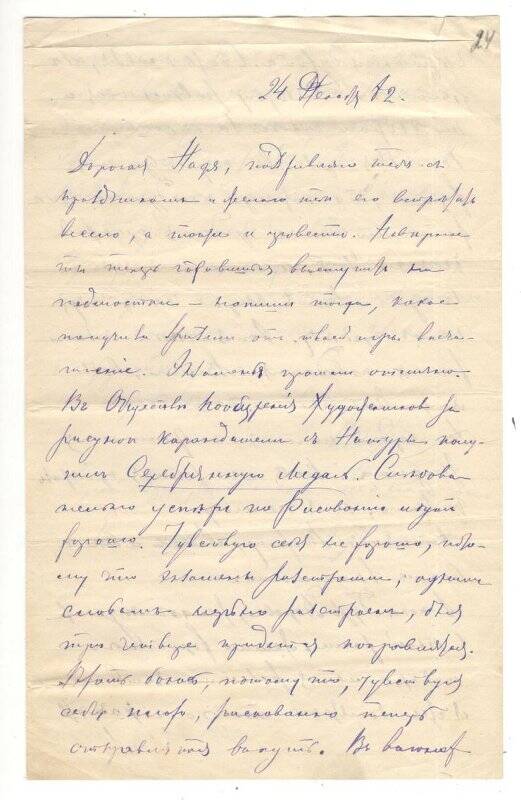 24
24 Декабр. 82.
Дорогая Надя, поздравляю тебя съ
праздникомъ и желаю тебе его встрѣчать
весело, а также и провести. Наверное
ты теперь готовишься выступить на
подмостки — напиши тогда, какое
получили зрители отъ твоей игры впеча-
тленіе. Экзамены прошли отлично.
Въ Обществѣ Поощренія Художниковъ за
рисунок карандашемъ съ Натуры полу-
чилъ Серебрянную Медаль. Следова-
тельно успѣхи по Рисованію идутъ
хорошо. Чувствую себя не хорошо, пото-
му что экзамены разстроили, однимъ
словомъ нервно разстроенъ, дня
три четыре придется поправляться.
Ѣхать боюсь, потому что, чувствуя
себя плохо, рискованно теперь
отправляться въ путь. Въ